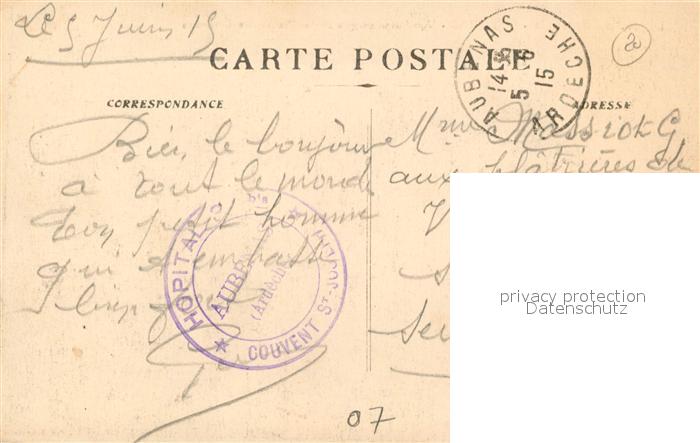 Le 5 Juin 15
20
CARTE POSTALE
AUBENAS
14 35
5 - 6
15
ARDECHE
CORRESPONDANCE
ADRESSE
Bien le bonjour
à tout le monde
Ton petit homme
qui t'embrasse
bien fort
HOPITAL
Bis
AUBENAS
(Ardèche)
COUVENT ST-JOSEPH
Mme Massiot G
aux plâtrières de
V
Sei
privacy protection
Datenschutz
07